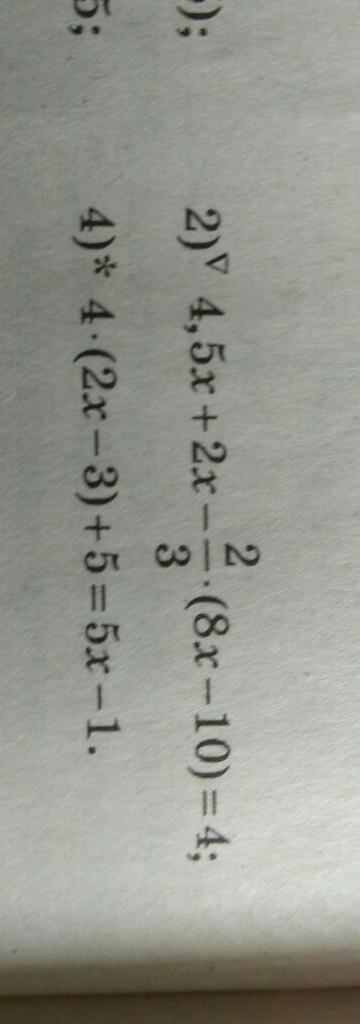 );
2)∇ 4,5x+2x−2/3·(8x−10)=4;
5;
4)* 4·(2x−3)+5=5x−1.